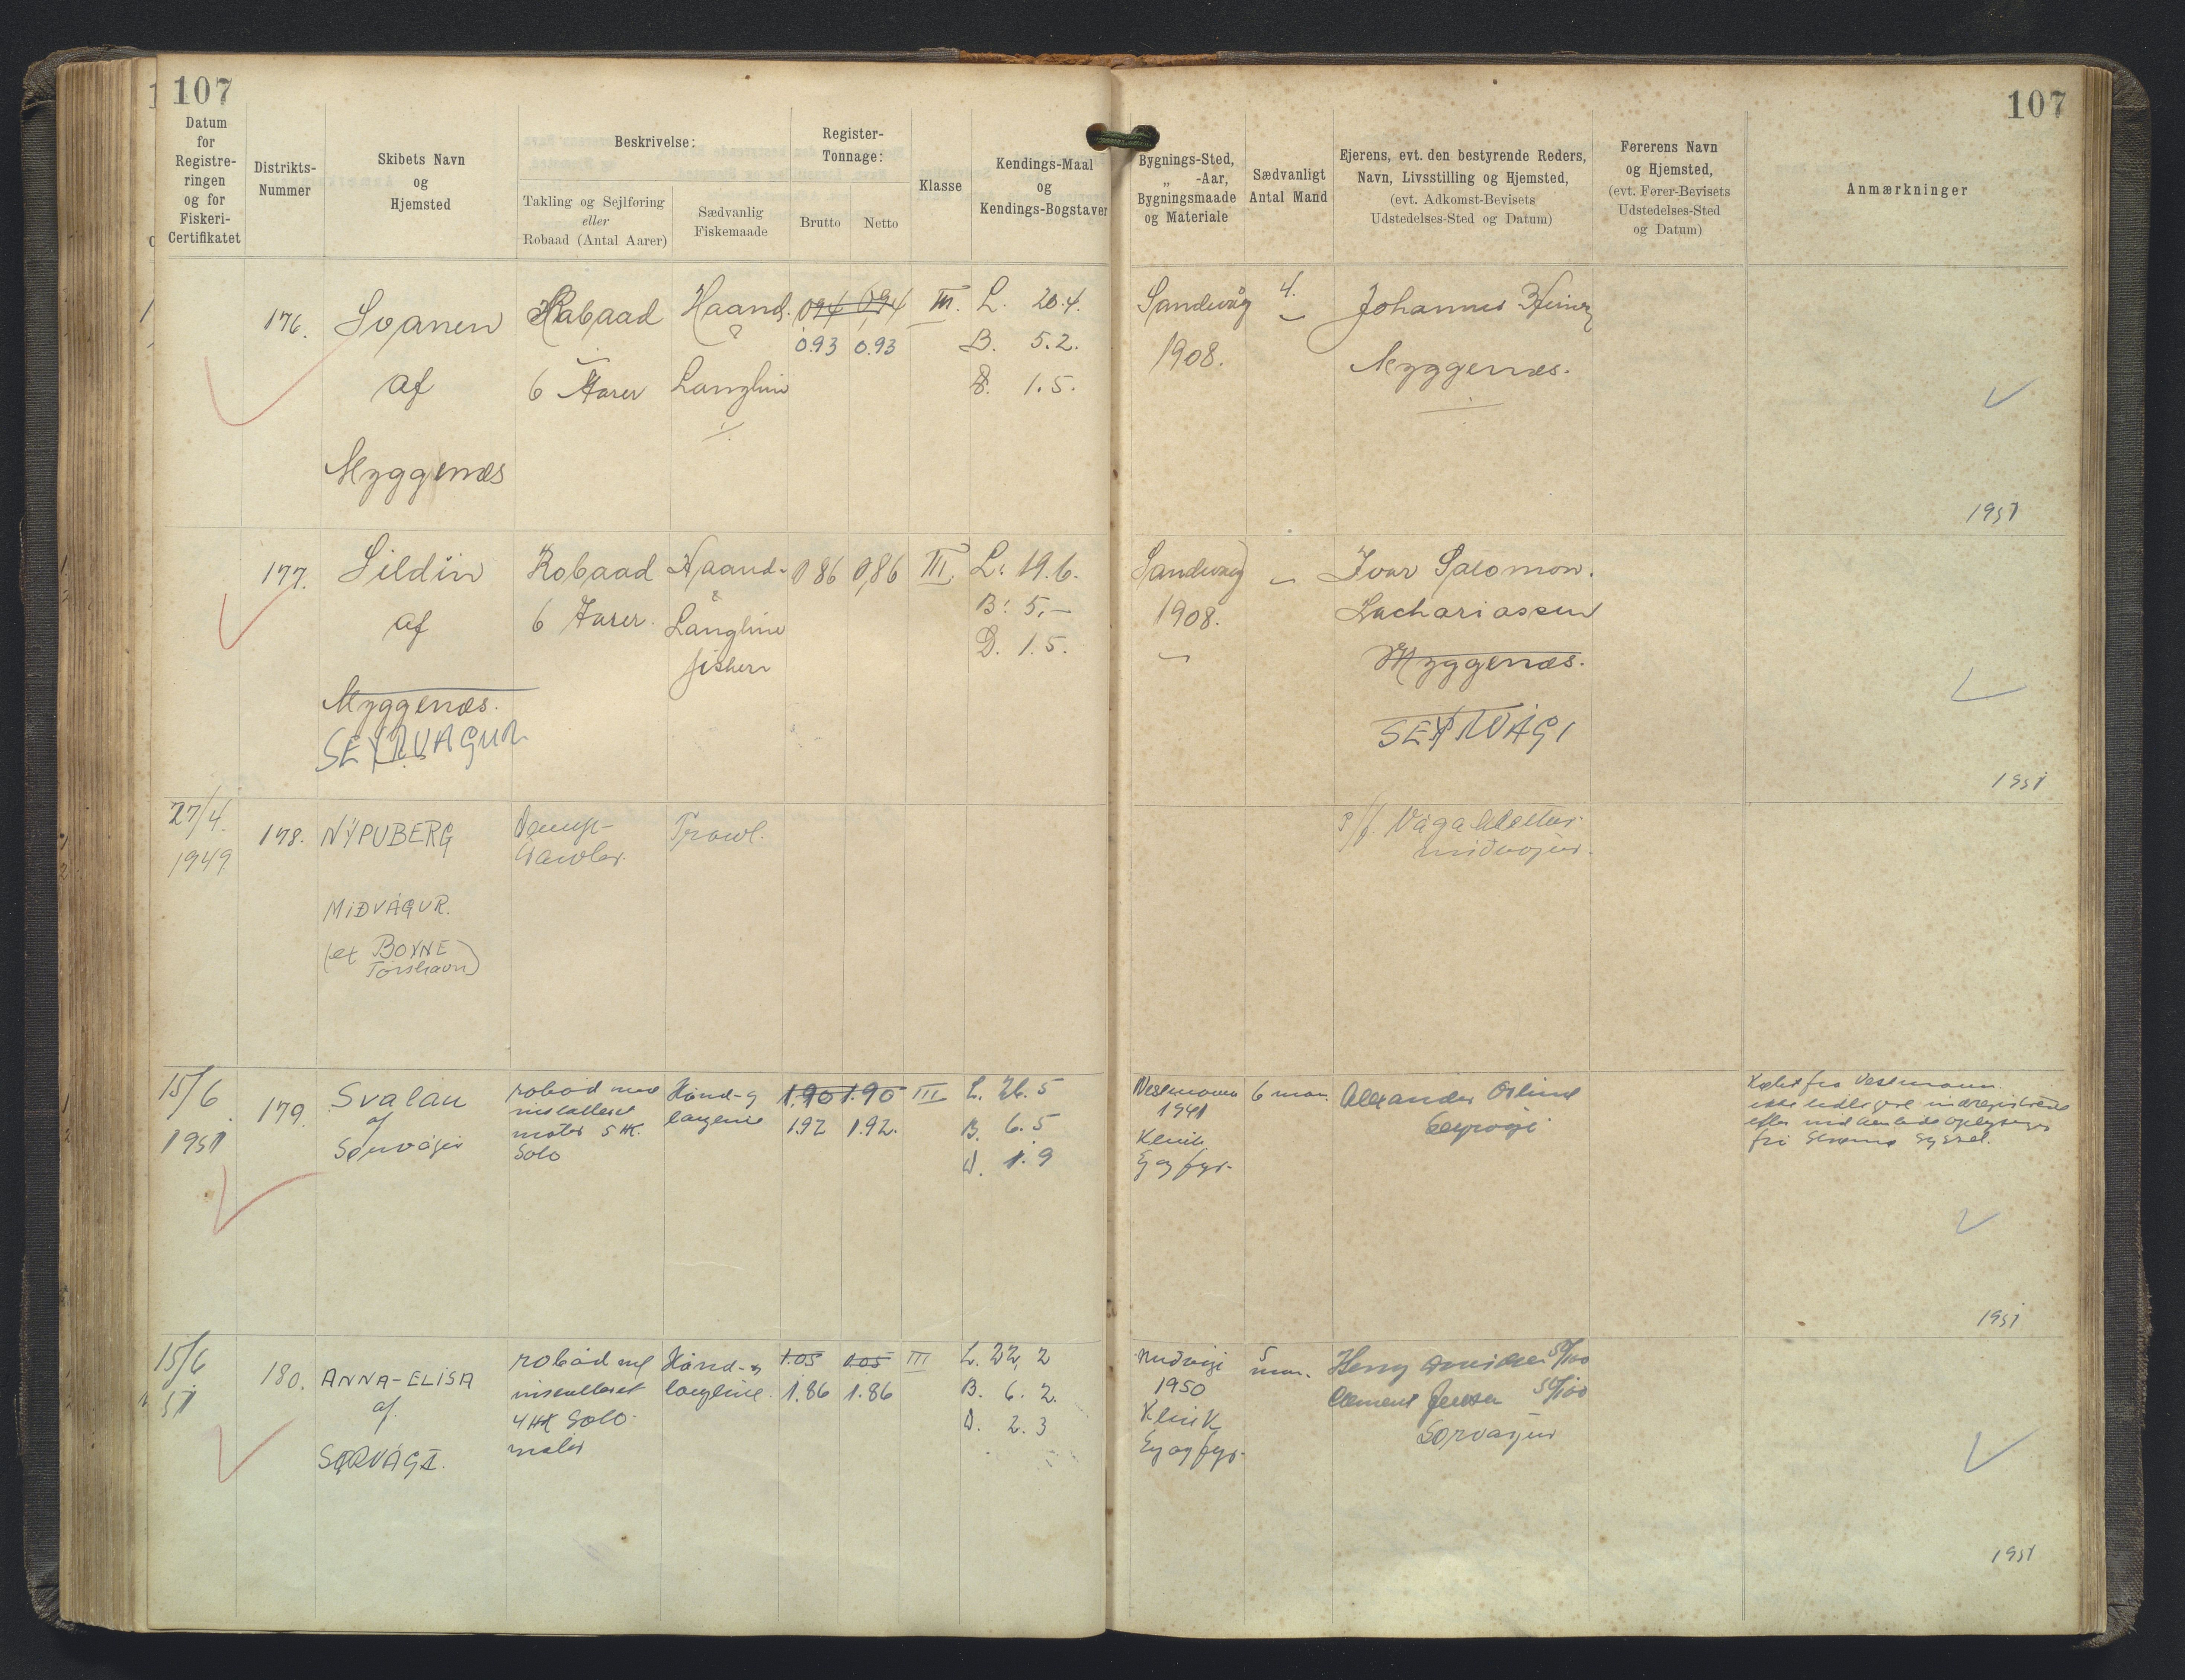 107
107
Datum for Registreringen og for Fiskeri-Certifikatet
Distrikts-Nummer
Skibets Navn og Hjemsted
Beskrivelse:
Takling og Sejlføring eller Robaad (Antal Aarer)
Sædvanlig Fiskemaade
Register-Tonnage:
Brutto
Netto
Klasse
Kendings-Maal og Kendings-Bogstaver
Bygnings-Sted, „ -Aar, Bygningsmaade og Materiale
Sædvanligt Antal Mand
Ejerens, evt. den bestyrende Reders, Navn, Livsstilling og Hjemsted, (evt. Adkomst-Bevisets Udstedelses-Sted og Datum)
Førerens Navn og Hjemsted, (evt. Fører-Bevisets Udstedelses-Sted og Datum)
Anmærkninger
176. Svanen Robaad Haand. 0,94 0,94 III. L. 20.4. Sandevåg 4. Johannus
0.93 0.93 B. 5.2. 1908. Myggenæs.
af 6 Aarer Langline D. 1.5.
Myggenæs
1951
177. Sildin Robaad Haand- 0,86 0,86 III. L: 19.6. Sandevaag Ivar Salomon.
af 6 Aarer. Langline B: 5,- 1908. Zachariassen
fiskeri D. 1.5. Myggenæs.
Myggenæs.
SEYRVAGUR SEYRVÁGI
1951
27/4. 178. NÝPUBERG Damp- Trawl. P/f.
1949 trawler. Miðvágur.
MIÐVÁGUR.
(ex BOYNE
Tórshavn)
15/6 179. Svalan robåd med Hånd-og 1.90 1.90 III L. 26.5 Vestmanna 6 man. Alexander Købt fra Vestmanna.
1951 af installeret langline 1.92 1.92. B. 6.5 1941
Sørvágur motor 5 HK. D. 1.9 Klink
Solo Eg og fyr.
1951
15/6 180. ANNA-ELISA robåd med Hånd-og 1.05 1.05 III L. 22,2 Miðvági 5 man. Henry 50/100
51 af installeret langline. 1.86 1.86 B. 6.2. 1950 Clement Jensen 50/100
SØRVÁGI. 4 HK Solo- D. 2.3 Klink Sørvágur
motor Eg og fyr.
1951